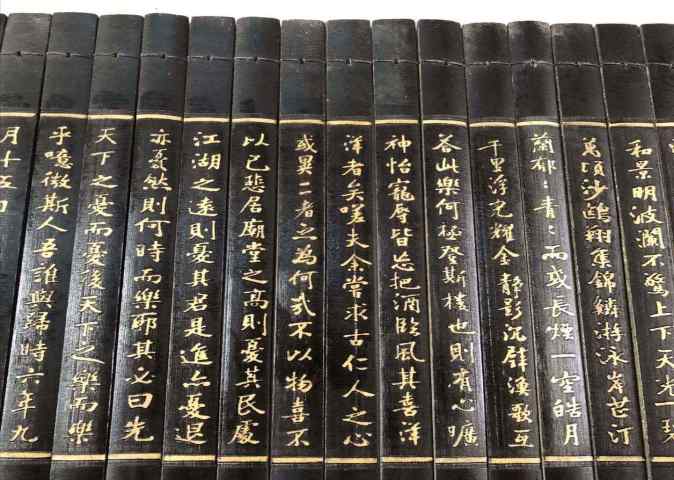 和景明波瀾不驚上下天光一碧
萬頃沙鷗翔集錦鱗游泳岸芷汀
蘭郁〻青〻而或長煙一空皓月
千里浮光耀金靜影沉璧漁歌互
答此樂何極登斯樓也則有心曠
神怡寵辱皆忘把酒臨風其喜洋
洋者矣嗟夫余嘗求古仁人之心
或異二者之為何哉不以物喜不
以己悲居廟堂之高則憂其民處
江湖之遠則憂其君是進亦憂退
亦憂然則何時而樂耶其必曰先
天下之憂而憂後天下之樂而樂
乎噫微斯人吾誰與歸時六年九
月十五日